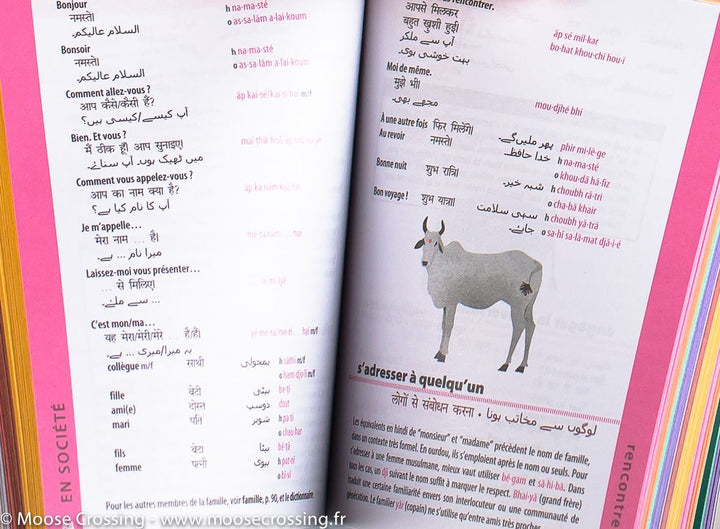 Bonjour
नमस्ते। h na-ma-sté
السلام عالیکم۔ o as-sa-lām a-lai-koum
Bonsoir
नमस्ते। h na-ma-sté
السلام عالیکم۔ o as-sa-lām a-lai-koum
Comment allez-vous ?
आप कैसे/कैसी हैं? āp kai-sé/kai-sī hai m/f
آپ کیسے/کیسی ہیں؟
Bien. Et vous ?
मैं ठीक हूँ। आप सुनाइए।
میں ٹھیک ہوں۔ آپ سنائیے۔
Comment vous appelez-vous ?
आप का नाम क्या है?
آپ کا نام کیا ہے؟
Je m'appelle…
मेरा नाम … है।
میرا نام … ہے۔
Laissez-moi vous présenter…
… से मिलिए।
… سے ملئے۔
C'est mon/ma…
यह मेरा/मेरी/मेरे … है/हैं।
یہ میرا/میری … ہے۔
collègue m/f साथी h sāthī m/f
fille बेटी بیٹی bé-ṭī
ami(e) दोस्त دوست dost
mari पति شوہر h pa-ti
o chau-har
fils बेटा بیٹا bé-ṭā
femme पत्नी بیوی h pat-nī
o bī-vī
Pour les autres membres de la famille, voir famille, p. 90, et le dictionnaire.
EN SOCIÉTÉ
rencontrer.
आपसे मिलकर
बहुत खुशी हुई। āp sé mil-kar
آپ سے ملکر bo-hat khou-chī hou-ī
بہت خوشی ہوئی۔
Moi de même.
मुझे भी।
مجھے بھی۔ mou-djhé bhī
À une autre fois फिर मिलेंगे। پھر ملیں گے۔ phir mi-lé-ge
Au revoir नमस्ते। خدا حافظ۔ h na-ma-sté
o khou-dā hā-fiz
Bonne nuit शुभ रात्रि। شبہ خیر۔ h choubh rā-tri
o cha-bā khair
Bon voyage ! शुभ यात्रा। سہی سلامت h choubh yā-trā
جایے۔ o sa-hī sa-lā-mat djā-i-é
s'adresser à quelqu'un
लोगों से संबोधन करना • لوگوں سے مخاتب ہونا
Les équivalents en hindi de "monsieur" et "madame" précèdent le nom de famille,
dans un contexte très formel. En ourdou, ils s'emploient après le nom ou seuls. Pour
s'adresser à une femme musulmane, mieux vaut utiliser bé-gam et sā-hi-bā. Dans
tous les cas, un djī suivant le nom suffit à marquer le respect. Bhai-yā (grand frère)
traduit une certaine familiarité envers son interlocuteur ou une communauté de
génération. Le familier yār (copain) ne s'utilise qu'entre amis très proches
rencontre
© Moose Crossing - www.moosecrossing.fr